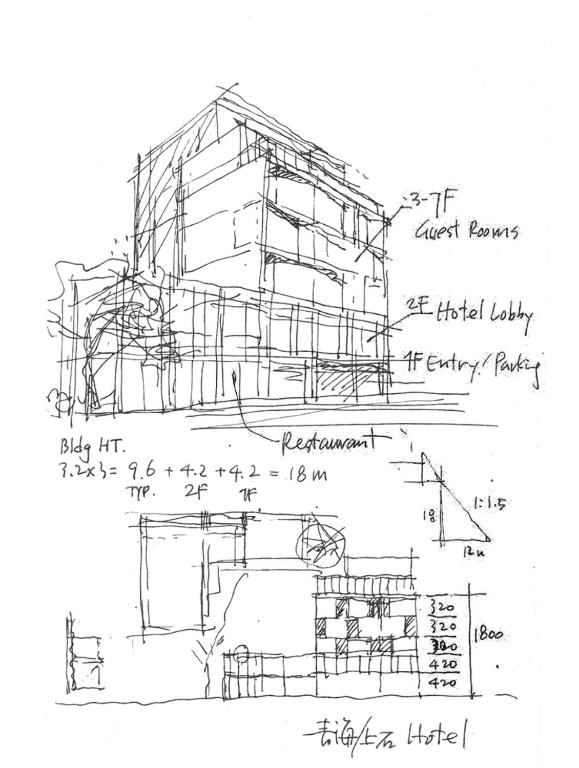 3-7F
Guest Rooms
2F Hotel Lobby
1F Entry/Parking
Restaurant
Bldg HT.
3.2x3= 9.6 + 4.2 + 4.2 = 18 m
TYP. 2F 1F
1:1.5
18
320
320
420
420
1800
青海/上石 Hotel